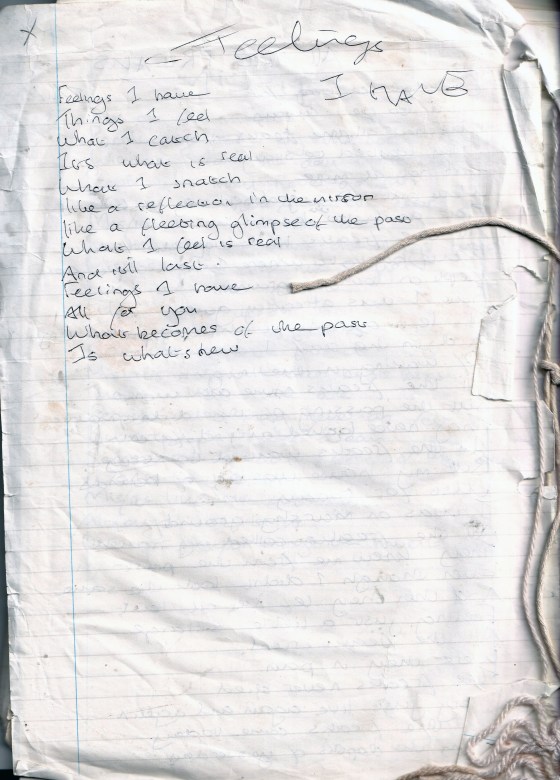 X
Feelings
I HAVE
Feelings I have
Things I feel
What I catch
Its what is real
What I snatch
like a reflection in the mirror
like a fleeting glimpse of the past
What I feel is real
And will last.
Feelings I have
All for you
What becomes of the past
Is what's new